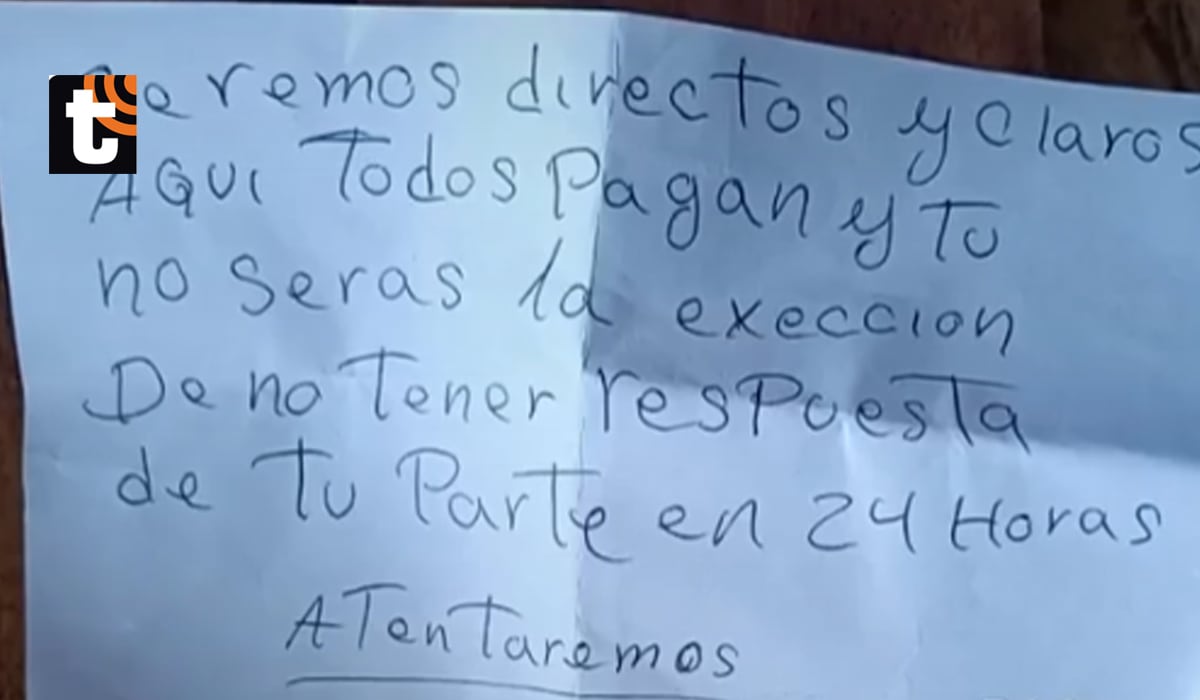 t
directos y claros
AQUI Todos Pagan y Tu
no seras la execcion
De no Tener resPuesta
de Tu Parte en 24 Horas
ATenTaremos